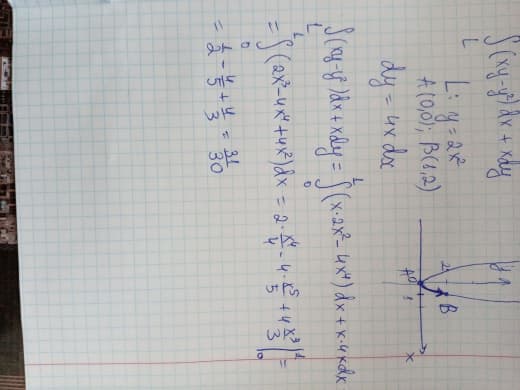 ∫(xy-y²)dx + xdy
L
L: y = 2x²
A(0,0); B(1,2)
dy = 4x dx
y
2
B
A
0
1
x
∫(xy-y²)dx + xdy = ∫(x·2x² - 4x⁴) dx + x·4xdx
L
1
0
= ∫(2x³-4x⁴+4x²)dx = 2·x⁴/4 - 4·x⁵/5 + 4x³/3 |
1
0
1
0
=
= 1/2 - 4/5 + 4/3 = 31/30